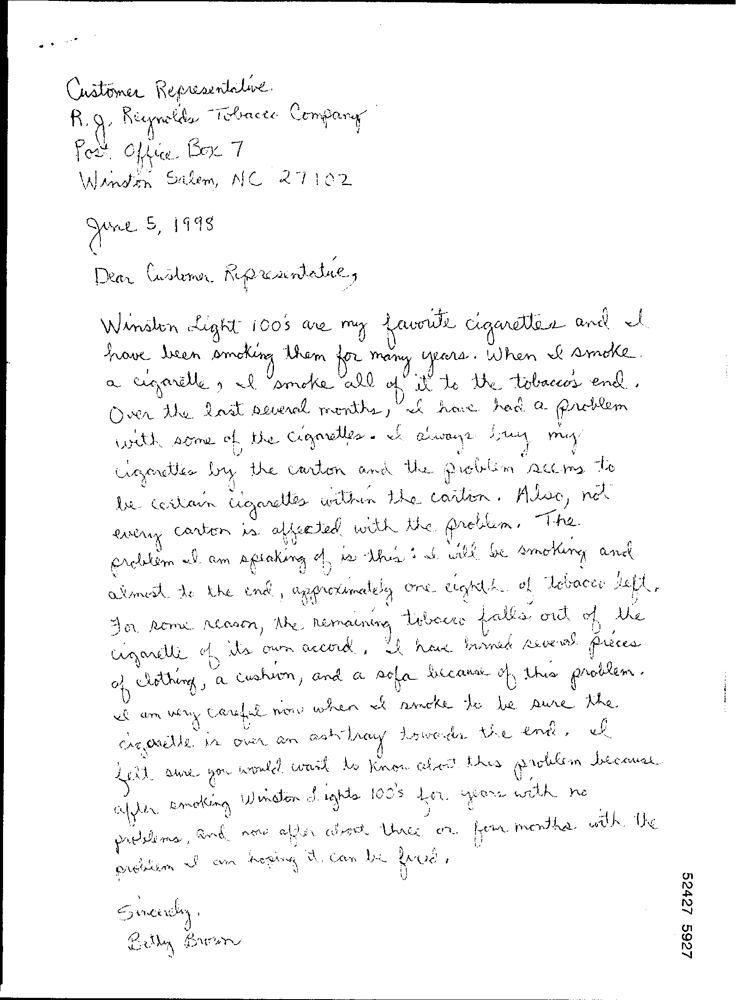 Customer Representative
R.J. Reynolds Tobacco Company
Post Office Box 7
Winston Salem, NC 27102
June 5, 1998
Dear Customer Representative,
Winston Light 100's are my favorite cigarettes and I
have been smoking them for many years. When I smoke
a cigarette, I smoke all of it to the tobacco's end.
Over the last several months, I have had a problem
with some of the cigarettes. I always buy my
cigarettes by the carton and the problem seems to
be certain cigarettes within the carton. Also, not
every carton is affected with the problem. The
problem I am speaking of is this: I will be smoking and
almost to the end, approximately one eighth of tobacco left.
For some reason, the remaining tobacco falls out of the
cigarette of its own accord. I have burned several pieces
of clothing, a cushion, and a sofa because of this problem.
I am very careful now when I smoke to be sure the
cigarette is over an ash tray towards the end. I
felt sure you would want to know about this problem because
after smoking Winston Lights 100's for years with no
problems, and now after about three or four months with the
problem I am hoping it can be fixed.
Sincerely,
Betty Brown
52427 5927